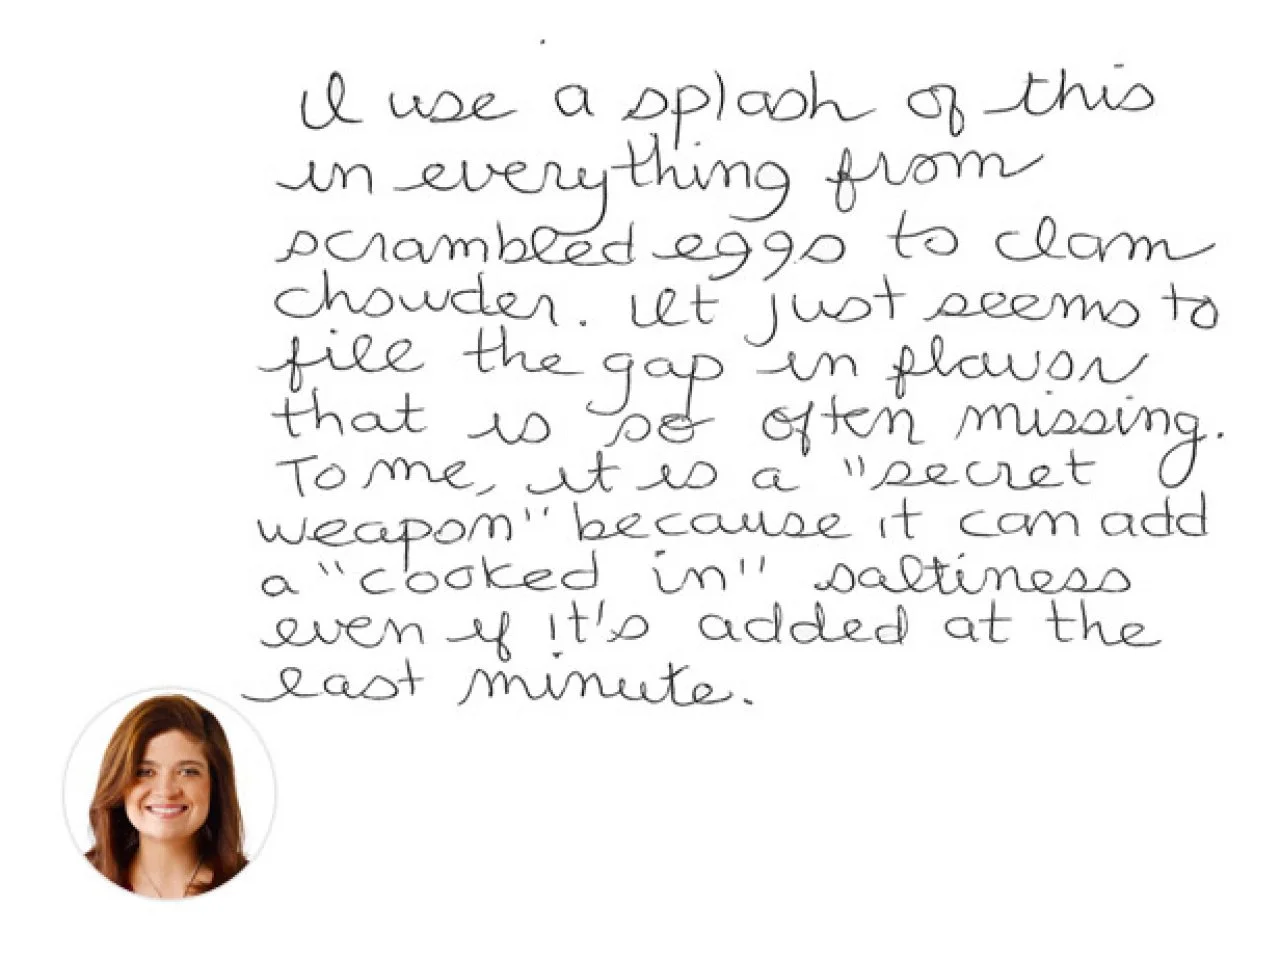 I use a splash of this
in everything from
scrambled eggs to clam
chowder. It just seems to
fill the gap in flavor
that is so often missing.
To me, it is a "secret
weapon" because it can add
a "cooked in" saltiness
even if it's added at the
last minute.